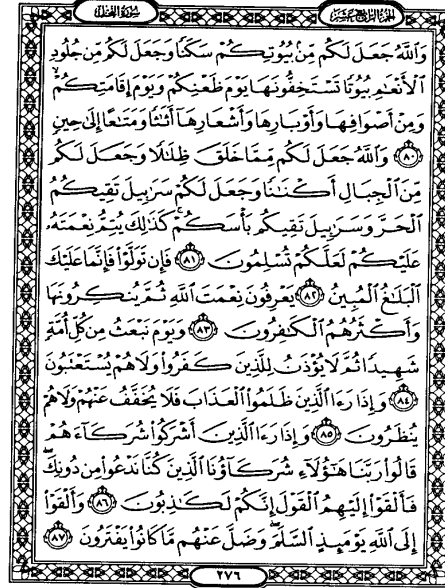 سُورَةُ النَّحْل
الجزء الرابع عشر
وَٱللَّهُ جَعَلَ لَكُم مِّنۢ بُيُوتِكُمْ سَكَنًا وَجَعَلَ لَكُم مِّن جُلُودِ
ٱلْأَنْعَٰمِ بُيُوتًا تَسْتَخِفُّونَهَا يَوْمَ ظَعْنِكُمْ وَيَوْمَ إِقَامَتِكُمْ ۙ
وَمِنْ أَصْوَافِهَا وَأَوْبَارِهَا وَأَشْعَارِهَآ أَثَٰثًا وَمَتَٰعًا إِلَىٰ حِينٍ
٨٠ وَٱللَّهُ جَعَلَ لَكُم مِّمَّا خَلَقَ ظِلَٰلًا وَجَعَلَ لَكُم
مِّنَ ٱلْجِبَالِ أَكْنَٰنًا وَجَعَلَ لَكُمْ سَرَٰبِيلَ تَقِيكُمُ
ٱلْحَرَّ وَسَرَٰبِيلَ تَقِيكُم بَأْسَكُمْ ۚ كَذَٰلِكَ يُتِمُّ نِعْمَتَهُۥ
عَلَيْكُمْ لَعَلَّكُمْ تُسْلِمُونَ ٨١ فَإِن تَوَلَّوْا۟ فَإِنَّمَا عَلَيْكَ
ٱلْبَلَٰغُ ٱلْمُبِينُ ٨٢ يَعْرِفُونَ نِعْمَتَ ٱللَّهِ ثُمَّ يُنكِرُونَهَا
وَأَكْثَرُهُمُ ٱلْكَٰفِرُونَ ٨٣ وَيَوْمَ نَبْعَثُ مِن كُلِّ أُمَّةٍ
شَهِيدًا ثُمَّ لَا يُؤْذَنُ لِلَّذِينَ كَفَرُوا۟ وَلَا هُمْ يُسْتَعْتَبُونَ
٨٤ وَإِذَا رَءَا ٱلَّذِينَ ظَلَمُوا۟ ٱلْعَذَابَ فَلَا يُخَفَّفُ عَنْهُمْ وَلَا هُمْ
يُنظَرُونَ ٨٥ وَإِذَا رَءَا ٱلَّذِينَ أَشْرَكُوا۟ شُرَكَآءَهُمْ
قَالُوا۟ رَبَّنَا هَٰٓؤُلَآءِ شُرَكَآؤُنَا ٱلَّذِينَ كُنَّا نَدْعُوا۟ مِن دُونِكَ ۖ
فَأَلْقَوْا۟ إِلَيْهِمُ ٱلْقَوْلَ إِنَّكُمْ لَكَٰذِبُونَ ٨٦ وَأَلْقَوْا۟
إِلَى ٱللَّهِ يَوْمَئِذٍ ٱلسَّلَمَ ۖ وَضَلَّ عَنْهُم مَّا كَانُوا۟ يَفْتَرُونَ ٨٧
٢٧٦